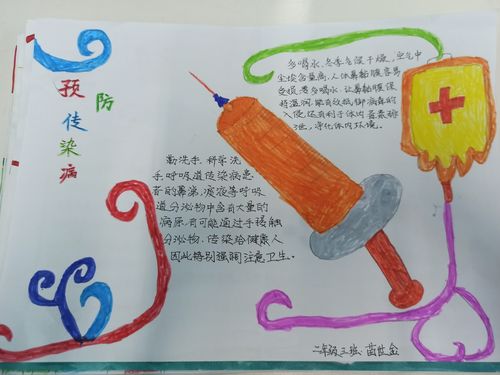 预防
传染病
多喝水,冬季气候干燥,空气中
尘埃含量高,人体鼻黏膜容易
受损,要多喝水,让鼻黏膜保
持湿润,能有效抵御病毒的
入侵,还有利于体内毒素排
泄,净化体内环境。
勤洗手,科学洗
手,呼吸道传染病患
者的鼻涕,痰液等呼吸
道分泌物中含有大量的
病原,有可能通过手接触
分泌物,传染给健康人
因此特别强调注意卫生。
二年级三班